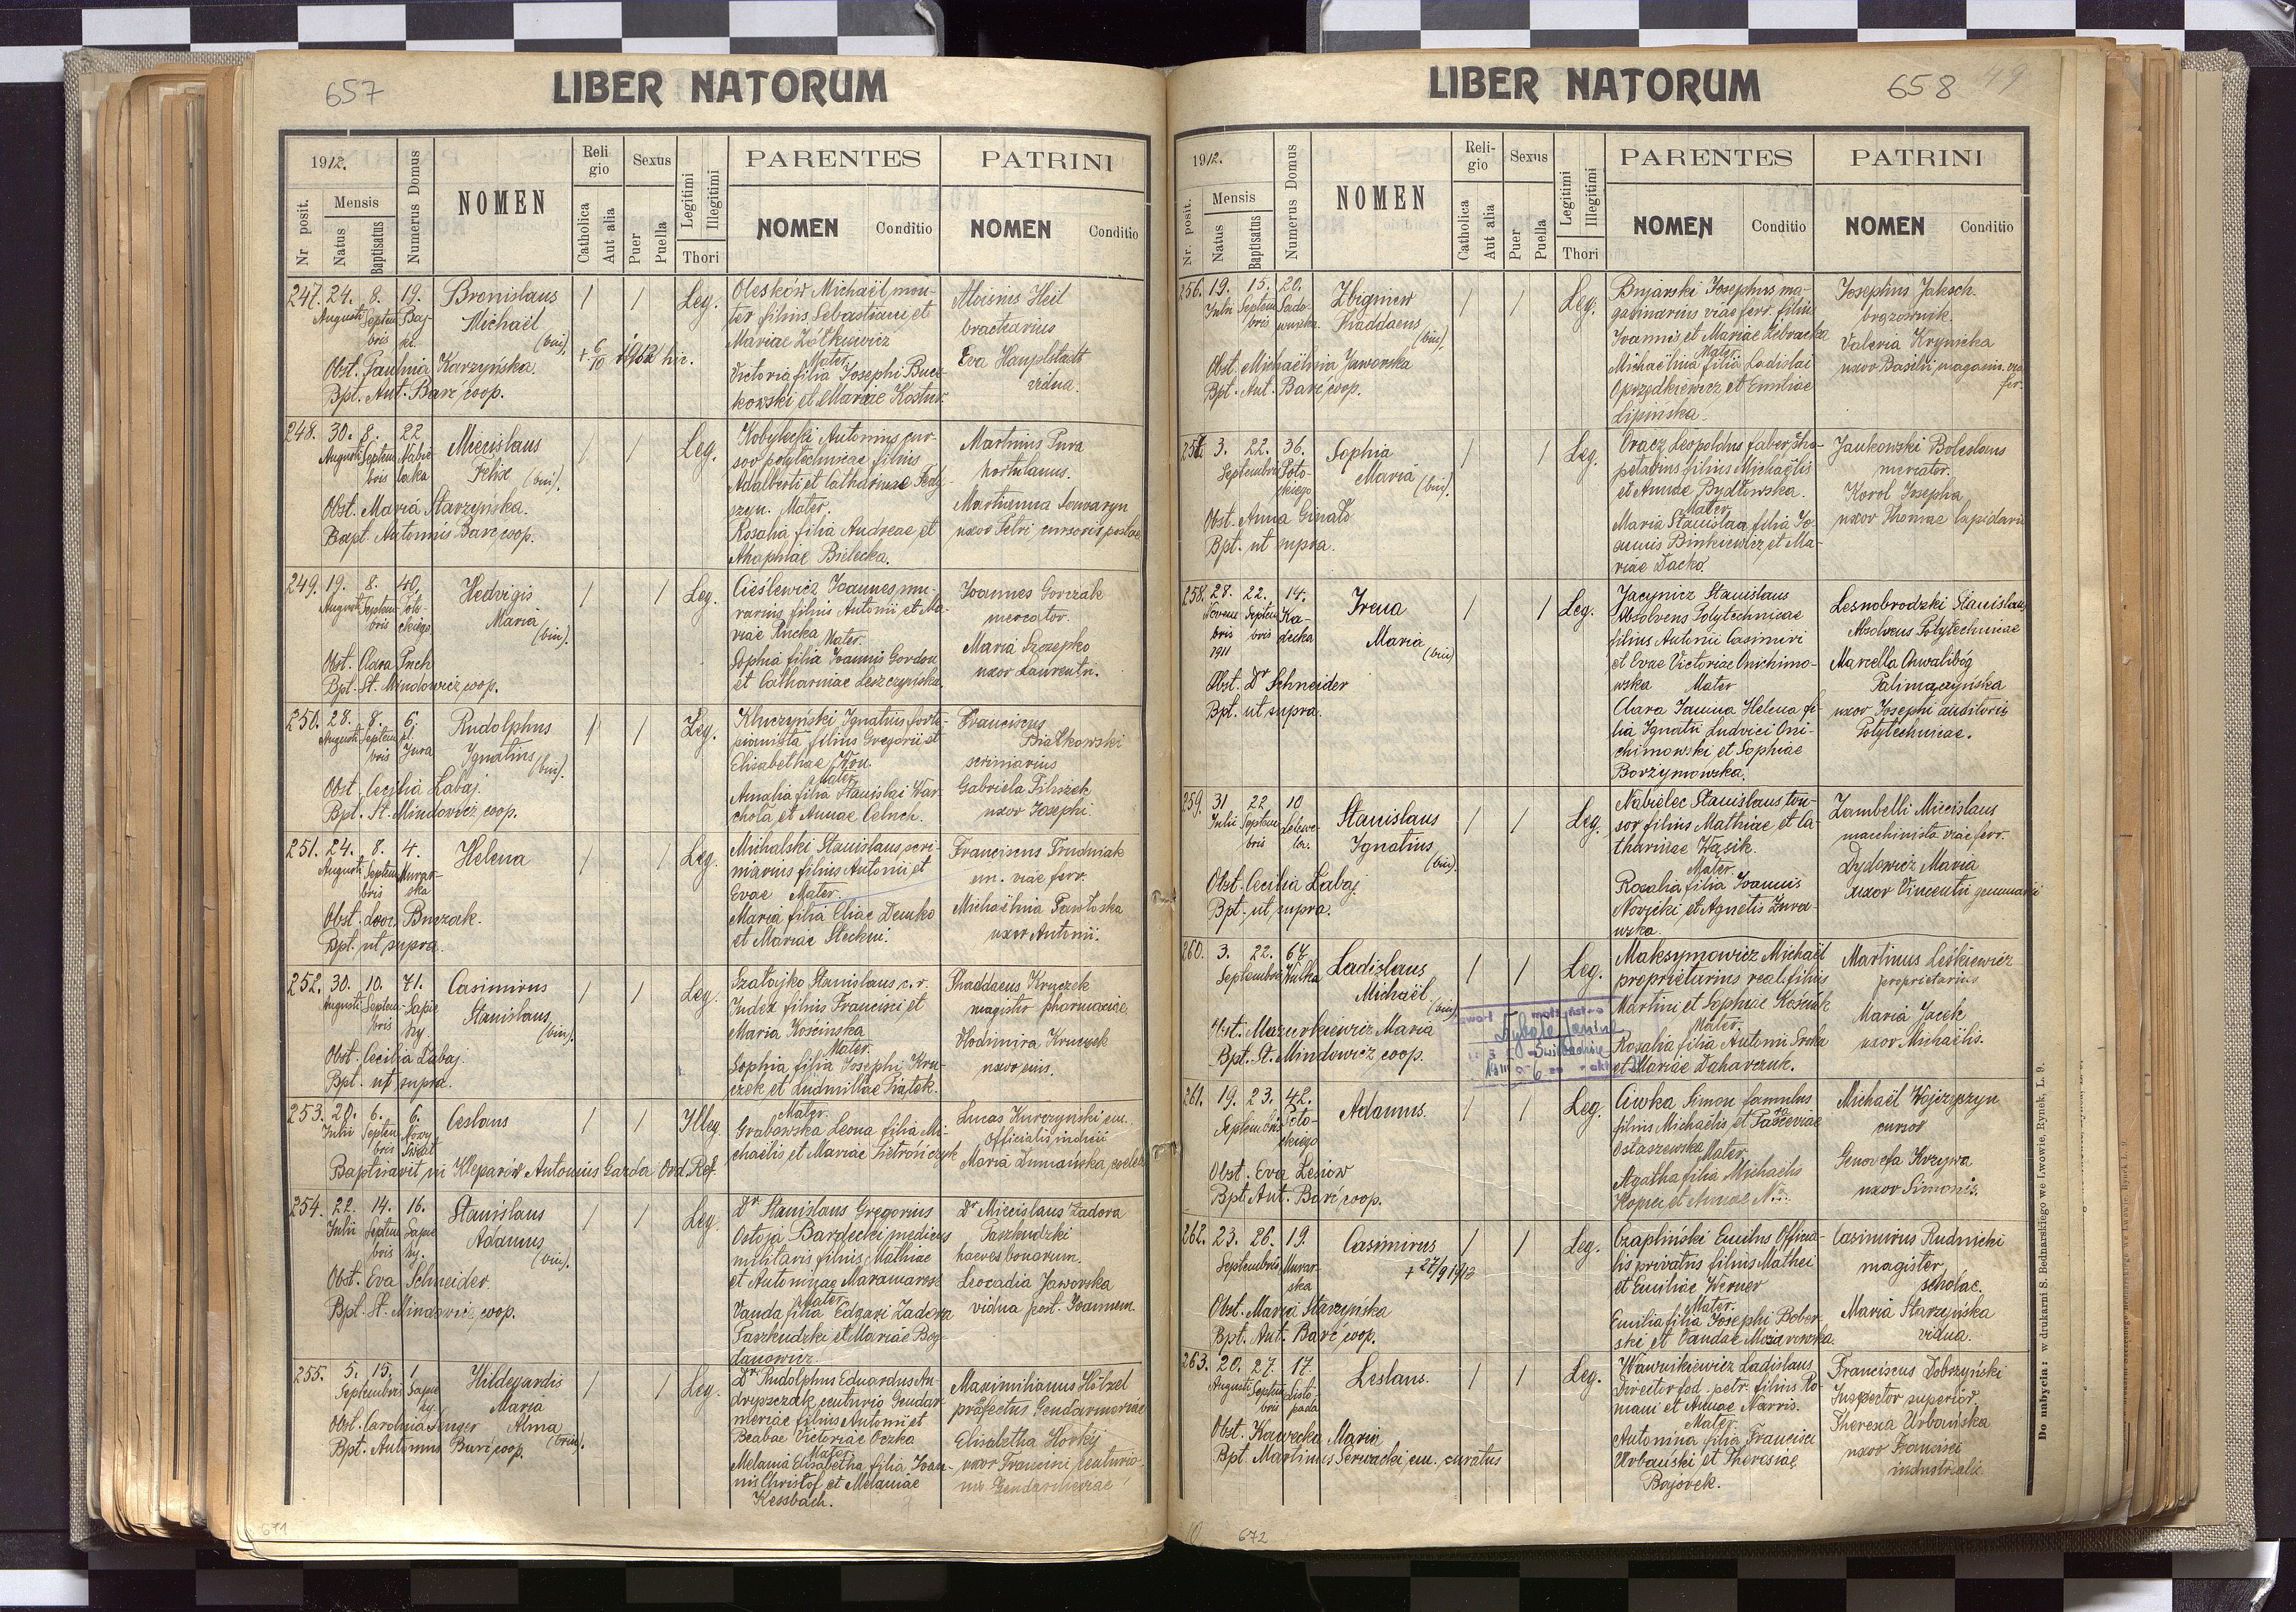 657
LIBER NATORUM
1912.
Nr. posit.
Mensis
Natus
Baptisatus
Numerus Domus
NOMEN
Religio
Catholica
Aut alia
Sexus
Puer
Puella
Legitimi
Illegitimi
Thori
PARENTES
NOMEN Conditio
PATRINI
NOMEN Conditio
247. 24. Augusti 8. Septembris 19.
Bronislaus
Michaël
(bin).
Obst. Paulina Karzyńska.
Bpt. Ant. Barć, coop.
Leg.
Oleskow Michaël, mon-
ter filius Sebastiani et
Mariae Żółkiewicz
Mater
Victoria filia Josephi Bucz-
kowski et Mariae
Aloisius Heil
bractearius
Eva Hauplstadt
vidua.
248. 30. Augusti 8. Septembris 22
Miecislaus
Felix (bin).
Obst. Maria Starzyńska.
Bapt. Antonius Barć, coop.
Leg.
Kobyłecki Antonius, cur-
sor polytechnicae filius
Adalberti et Catharinae
Mater.
Rosalia filia Andreae et
Bielecka.
Martinus Pura
hortulanus.
Marianna
uxor Petri cursoris postae
249. 19. Augusti 8. Septembris 40. Potockiego
Hedvigis
Maria
(bin).
Obst. Clara Puch
Bpt. St. Mindowicz, coop.
Leg.
Cieślewicz Joannes, mu-
rarius, filius Antonii et Ma-
riae Rucka Mater.
Sophia filia Joannis Gordon
et Catharinae Leszczyńska.
Joannes Gorczak
mercator.
Maria Szczepko
uxor Laurentii.
250. 28. Augusti 8. Septembris 6. pl. Jura
Rudolphus
Ignatius
(bin).
Obst. Cecilia Łabaj.
Bpt. St. Mindowicz, coop.
Leg.
Kluczyński Ignatius forte-
pianista filius Gregorii et
Elisabethae
Mater
Amalia filia Stanislai War-
chola et Annae Celuch.
Franciscus
Białkowski
scriniarius
Gabriela Piliszek
uxor Josephi.
251. 24. Augusti 8. Septembris 4. Murarska
Helena
Obst. Leoc. Buczak.
Bpt. ut supra.
Leg.
Michalski Stanislaus, scri-
niarius filius Antonii et
Evae Mater
Maria filia Eliae Demko
et Mariae Steckni.
Franciscus Trudniak
em. viae ferr.
Michaëlina Pawłoska
uxor Antonii.
252. 30. Augusti 10. Septembris 71. Sapiehy
Casimirus
Stanislaus
(bin).
Obst. Cecilia Łabaj.
Bpt. ut supra.
Leg.
Szałajko Stanislaus c. r.
Judex filius Francisci et
Maria Kościńska
Mater
Sophia filia Josephi Kru-
czek et Ludmillae Piątek.
Thaddaeus Kruczek
magister pharmaciae.
Vlodimira Kruczek
uxor eius.
253. 20. Julii 6. Septembris 6. Nowy Świat
Ceslaus
Baptisavit in Kleparów Antonius Garda Ord. Ref.
Illeg.
Mater.
Grabowska Leona filia Mi-
chaëlis et Mariae Pietrończyk
Lucas Kurczynski em.
Officialis indicii
Maria Dumańska, coelebs
254. 22. Julii 14. Septembris 16. Sapiehy.
Stanislaus
Adamus
(bin).
Obst. Eva Schneider.
Bpt. St. Mindowicz, coop.
Leg.
Dr Stanislaus Gregorius
Ostoja Bardecki, medicus
militaris filius Mathiae
et Antoninae Maramarosz
Mater
Vanda filia Edgari Zadora
Paszkudzki et Mariae Bog-
danowicz
Dr Miecislaus Zadora
Paszkudzki
haeres bonorum.
Leocadia Jaworska
vidua post. Joannem.
255. 5. Septembris 15. 1 Sapiehy.
Hildegardis
Maria
Alma
(trin).
Obst. Carolina Senger
Bpt. Antonius Barć, coop.
Leg.
Dr Rudolphus Eduardus An-
drejszczak, centurio Gendar-
meriae filius Antonii et
Beatae Victoriae Oczka
Mater
Melania Elisabetha filia Joan-
nis Christof et Melaniae
Kessbach.
Maximilianus Hölzel
präfectus Gendarmeriae
Elisabetha Horky
uxor Francisci, centurio-
nis Gendarmeriae
671
LIBER NATORUM
658
49
1912.
Nr. posit.
Mensis
Natus
Baptisatus
Numerus Domus
NOMEN
Religio
Catholica
Aut alia
Sexus
Puer
Puella
Legitimi
Illegitimi
Thori
PARENTES
NOMEN Conditio
PATRINI
NOMEN Conditio
256. 19. Julii 15. Septembris 20.
Zbigniew
Thaddaeus
(bin).
Obst. Michaëlina Jaworska
Bpt. Ant. Barć, coop.
Leg.
Bujarski Josephus ma-
gazinarius viae ferr. filius
Joannis et Mariae Żebracka
Mater
Michaëlina filia Ladislai
Oprzędkiewicz et Emiliae
Lipińska.
Josephus Jaksch.
brązownik.
Valeria Krynicka
uxor Basilii, magazin. viae
fer.
257. 3. Septembris 22. 36. Potockiego
Sophia
Maria
(bin).
Obst. Anna Ginald
Bpt. ut supra.
Leg.
Oracz Leopoldus faber
filius Michaëlis
et Annae Bydłowska.
Mater
Maria Stanislaa filia Jo-
annis Binkiewicz et Ma-
riae Dacko.
Jankowski Boleslaus
mercator.
Korol Josepha
uxor Thomae lapidarii
258. 28. Novembris 1911 22. Septembris 14. Kadecka
Irena
Maria
(bin)
Obst. Dr Schneider
Bpt. ut supra.
Leg.
Jacynicz Stanislaus
Absolvens Polytechnicae
filius Antonii Casimiri
et Evae Victoriae Onichimo-
wska Mater
Clara Janina Helena fi-
lia Ignatii Ludvici Oni-
chimowski et Sophiae
Borzymowska.
Lesnobrodzki Stanislaus
Absolvens Polytechnicae
Marcella Chwalibóg
Palimączyńska
uxor Josephi auditoris
Polytechnicae.
259. 31 Julii 22 Septembris 10 Lelewela.
Stanislaus
Ignatius
(bin)
Obst. Cecilia Łabaj
Bpt. ut supra.
Leg.
Nabielec Stanislaus ton-
sor filius Mathiae et Ca-
tharinae Wąsik.
Mater.
Rosalia filia Joannis
Novicki et Agnetis Żura-
wska.
Zambelli Miecislaus
machinista viae ferr.
Dydowicz Maria
uxor Vincentii
260. 3. Septembris 22. 67 Wulka
Ladislaus
Michaël
(bin)
Obst. Mazurkiewicz Maria
Bpt. St. Mindowicz, coop.
Leg.
Maksymowicz Michaël
proprietarius real. filius
Martini et Sophiae
Mater
Rosalia filia Antonii
et Mariae Daharczuk.
Martinus Leśkiewicz
proprietarius
Maria Jacek
uxor Michaëlis.
261. 19. Septembris 23. 42. Potockiego
Adamus.
Obst. Eva Lesiow
Bpt. Ant. Barć, coop.
Leg.
Ciwka Simon famulus
filius Michaëlis et
Ostaszewska Mater
Agatha filia Michaëlis
Kopeć et Annae N...
Michaël Wojczyszyn
cursor
Genovefa Krzywa
uxor Simonis.
262. 23. Septembris 26. 19. Murarska
Casimirus
† 27/9 1912
Obst. Maria Starzyńska
Bpt. Ant. Barć, coop.
Leg.
Czapliński Emilus Officia-
lis privatus filius Mathei
et Emiliae Werner
Mater.
Emilia filia Josephi Bober-
ski et Vandae
Casimirus Rudnicki
magister
scholae.
Maria Starzyńska
vidua.
263. 20. Augusti 27. Septembris 17. Listopada
Leslaus.
Obst. Kawecka Maria
Bpt. Martinus Serwacki, em. curatus
Leg.
Wawnikiewicz Ladislaus
Director fod. petr. filius Ro-
mani et Annae Norris.
Mater
Antonina filia Francisci
Urbański et Theresiae
Bajorek.
Franciscus Dobrzyński
Inspector superior.
Theresa Urbańska
uxor Francisci
industrialis
672
Do nabycia: w drukarni S. Bednarskiego we Lwowie, Rynek, L. 9.